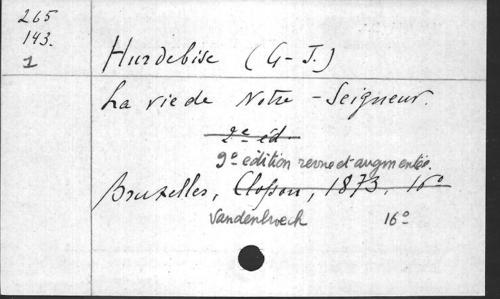 265
143.
1
Hurdebise (G-J.)
La vie de Notre-Seigneur.
2e éd.
9e édition revue et augmentée.
Bruxelles, Closson, 1873, 16o
Vandenbroeck 16o